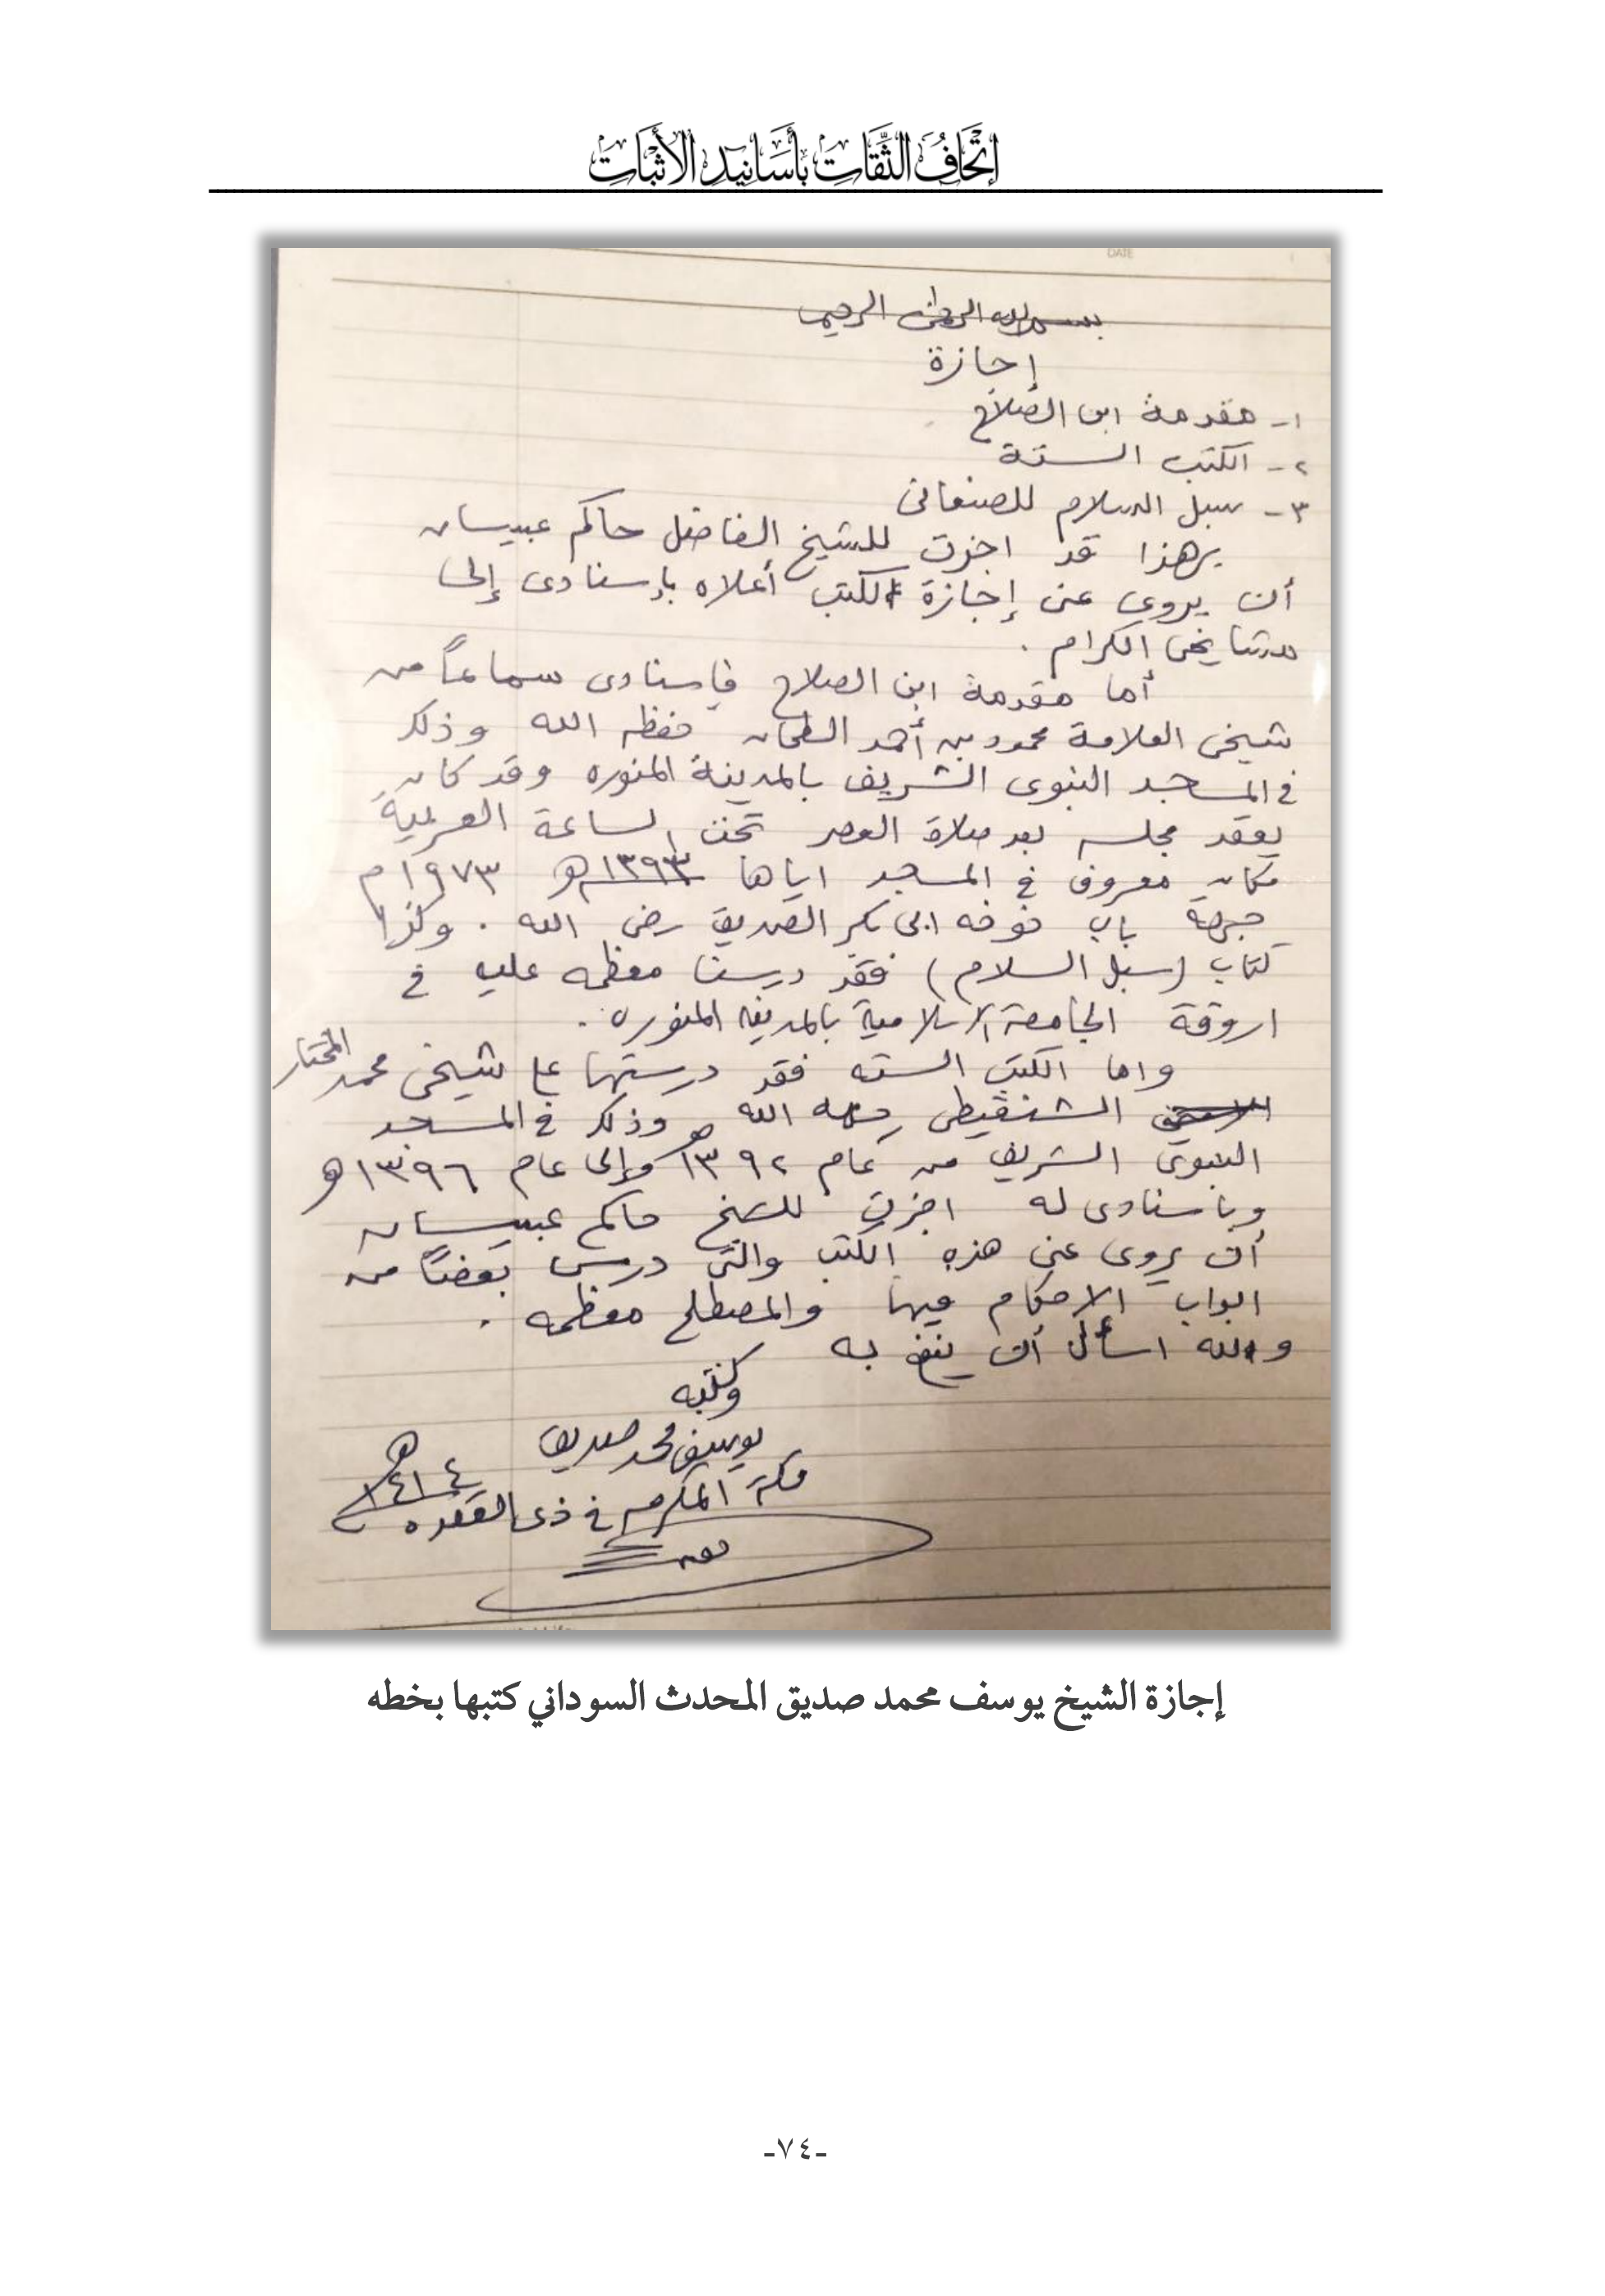 إِتْحَافُ الثِّقَاتِ بِأَسَانِيدِ الأَثْبَاتِ
DATE
بسم الله الرحمن الرحيم
إجازة
١- مقدمة ابن الصلاح
٢- الكتب الستة
٣- سبل السلام للصنعانى
بهذا قد اجزت للشيخ الفاضل حاكم عبيسان
أن يروى عنى إجازة الكتب أعلاه بإسنادى إلى
مشايخى الكرام .
أما مقدمة ابن الصلاح فإسنادى سماعاً من
شيخى العلامة محمود بن أحمد الطحان حفظه الله وذلك
فى المسجد النبوى الشريف بالمدينة المنوره وقد كان
يعقد مجلسه بعد صلاة العصر تحت الساعة الغربية
مكان معروف فى المسجد اياها ١٣٩٣هـ ١٩٧٣م
جهة باب خوخه ابى بكر الصديق رضى الله . وكذا
كتاب (سبل السلام) فقد درسنا معظمه عليه فى
اروقة الجامعة الاسلامية بالمدينه المنوره .
واما الكتب السته فقد درستها على شيخى محمد المختار
الشنقيطى رحمه الله وذلك فى المسجد
النبوى الشريف من عام ١٣٩٢هـ وإلى عام ١٣٩٦هـ
وباسنادى له اجزت للشيخ حاكم عبيسان
أن يروى عنى هذه الكتب والتى درس بعضاً من
ابواب الاحكام فيها والمصطلح معظمه .
والله اسأل أن ينفع به
وكتبه
يوسف محمد صديق
مكة المكرمه فى ذى القعده ١٤١٤هـ
إجازة الشيخ يوسف محمد صديق المحدث السوداني كتبها بخطه
-٧٤-